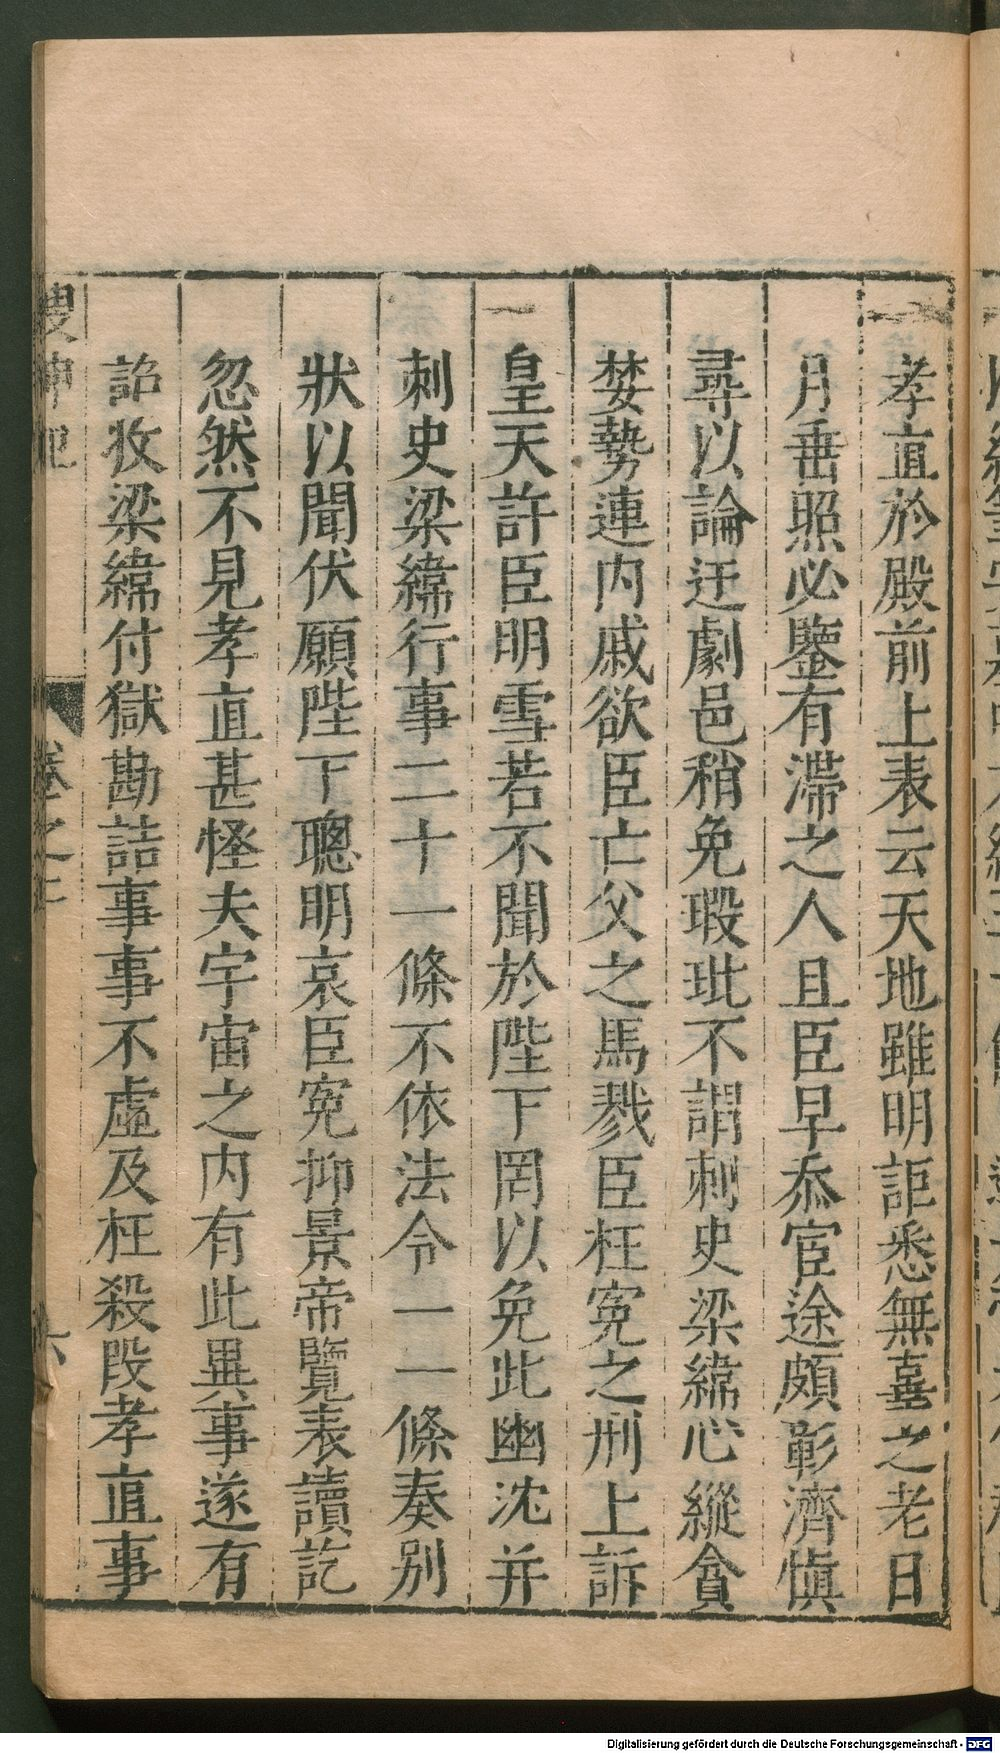 孝直於殿前上表云天地雖明詎悉無喜之老日
月垂照必鑒有滯之人且臣早忝宦途頗彰濟慎
尋以論迁劇邑稍免瑕玼不謂刺史梁緯心縱貪
婪勢連内戚欲臣亡父之馬戮臣枉寃之刑上訴
皇天許臣明雪若不聞於陛下罔以免此幽沈并
刺史梁緯行事二十一條不依法令一一條奏别
狀以聞伏願陛下聰明哀臣寃抑景帝覽表讀訖
忽然不見孝直甚怪夫宇宙之内有此異事遂有
詔收梁緯付獄勘詰事事不虛及枉殺段孝直事
搜神記
卷之
六
Digitalisierung gefördert durch die Deutsche Forschungsgemeinschaft - DFG